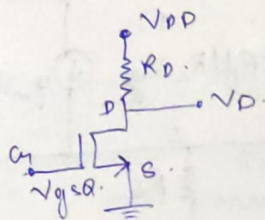 VDD
RD.
D
VD
G
S.
VgsQ.